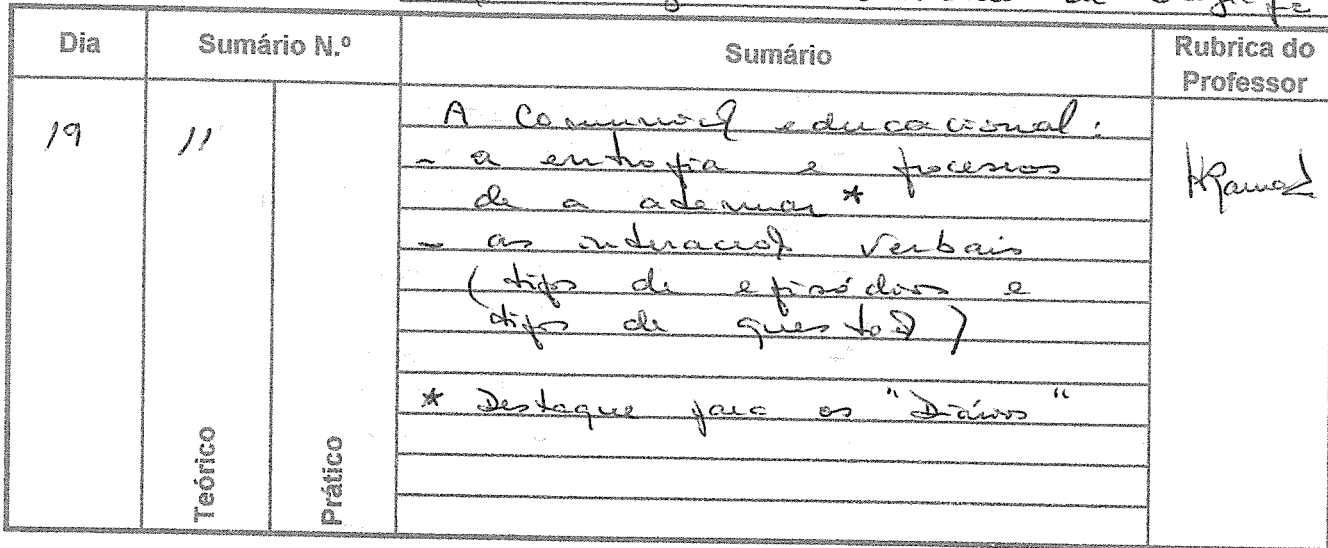 Dia
Sumário N.º
Sumário
Rubrica do
Professor
19
11
A Comunicaç educacional:
- a entropia e processos
de a atenuar *
- as interacções verbais
( tipos de episódios e
tipos de questões )
* Destaque para os "Diários"
Teórico
Prático